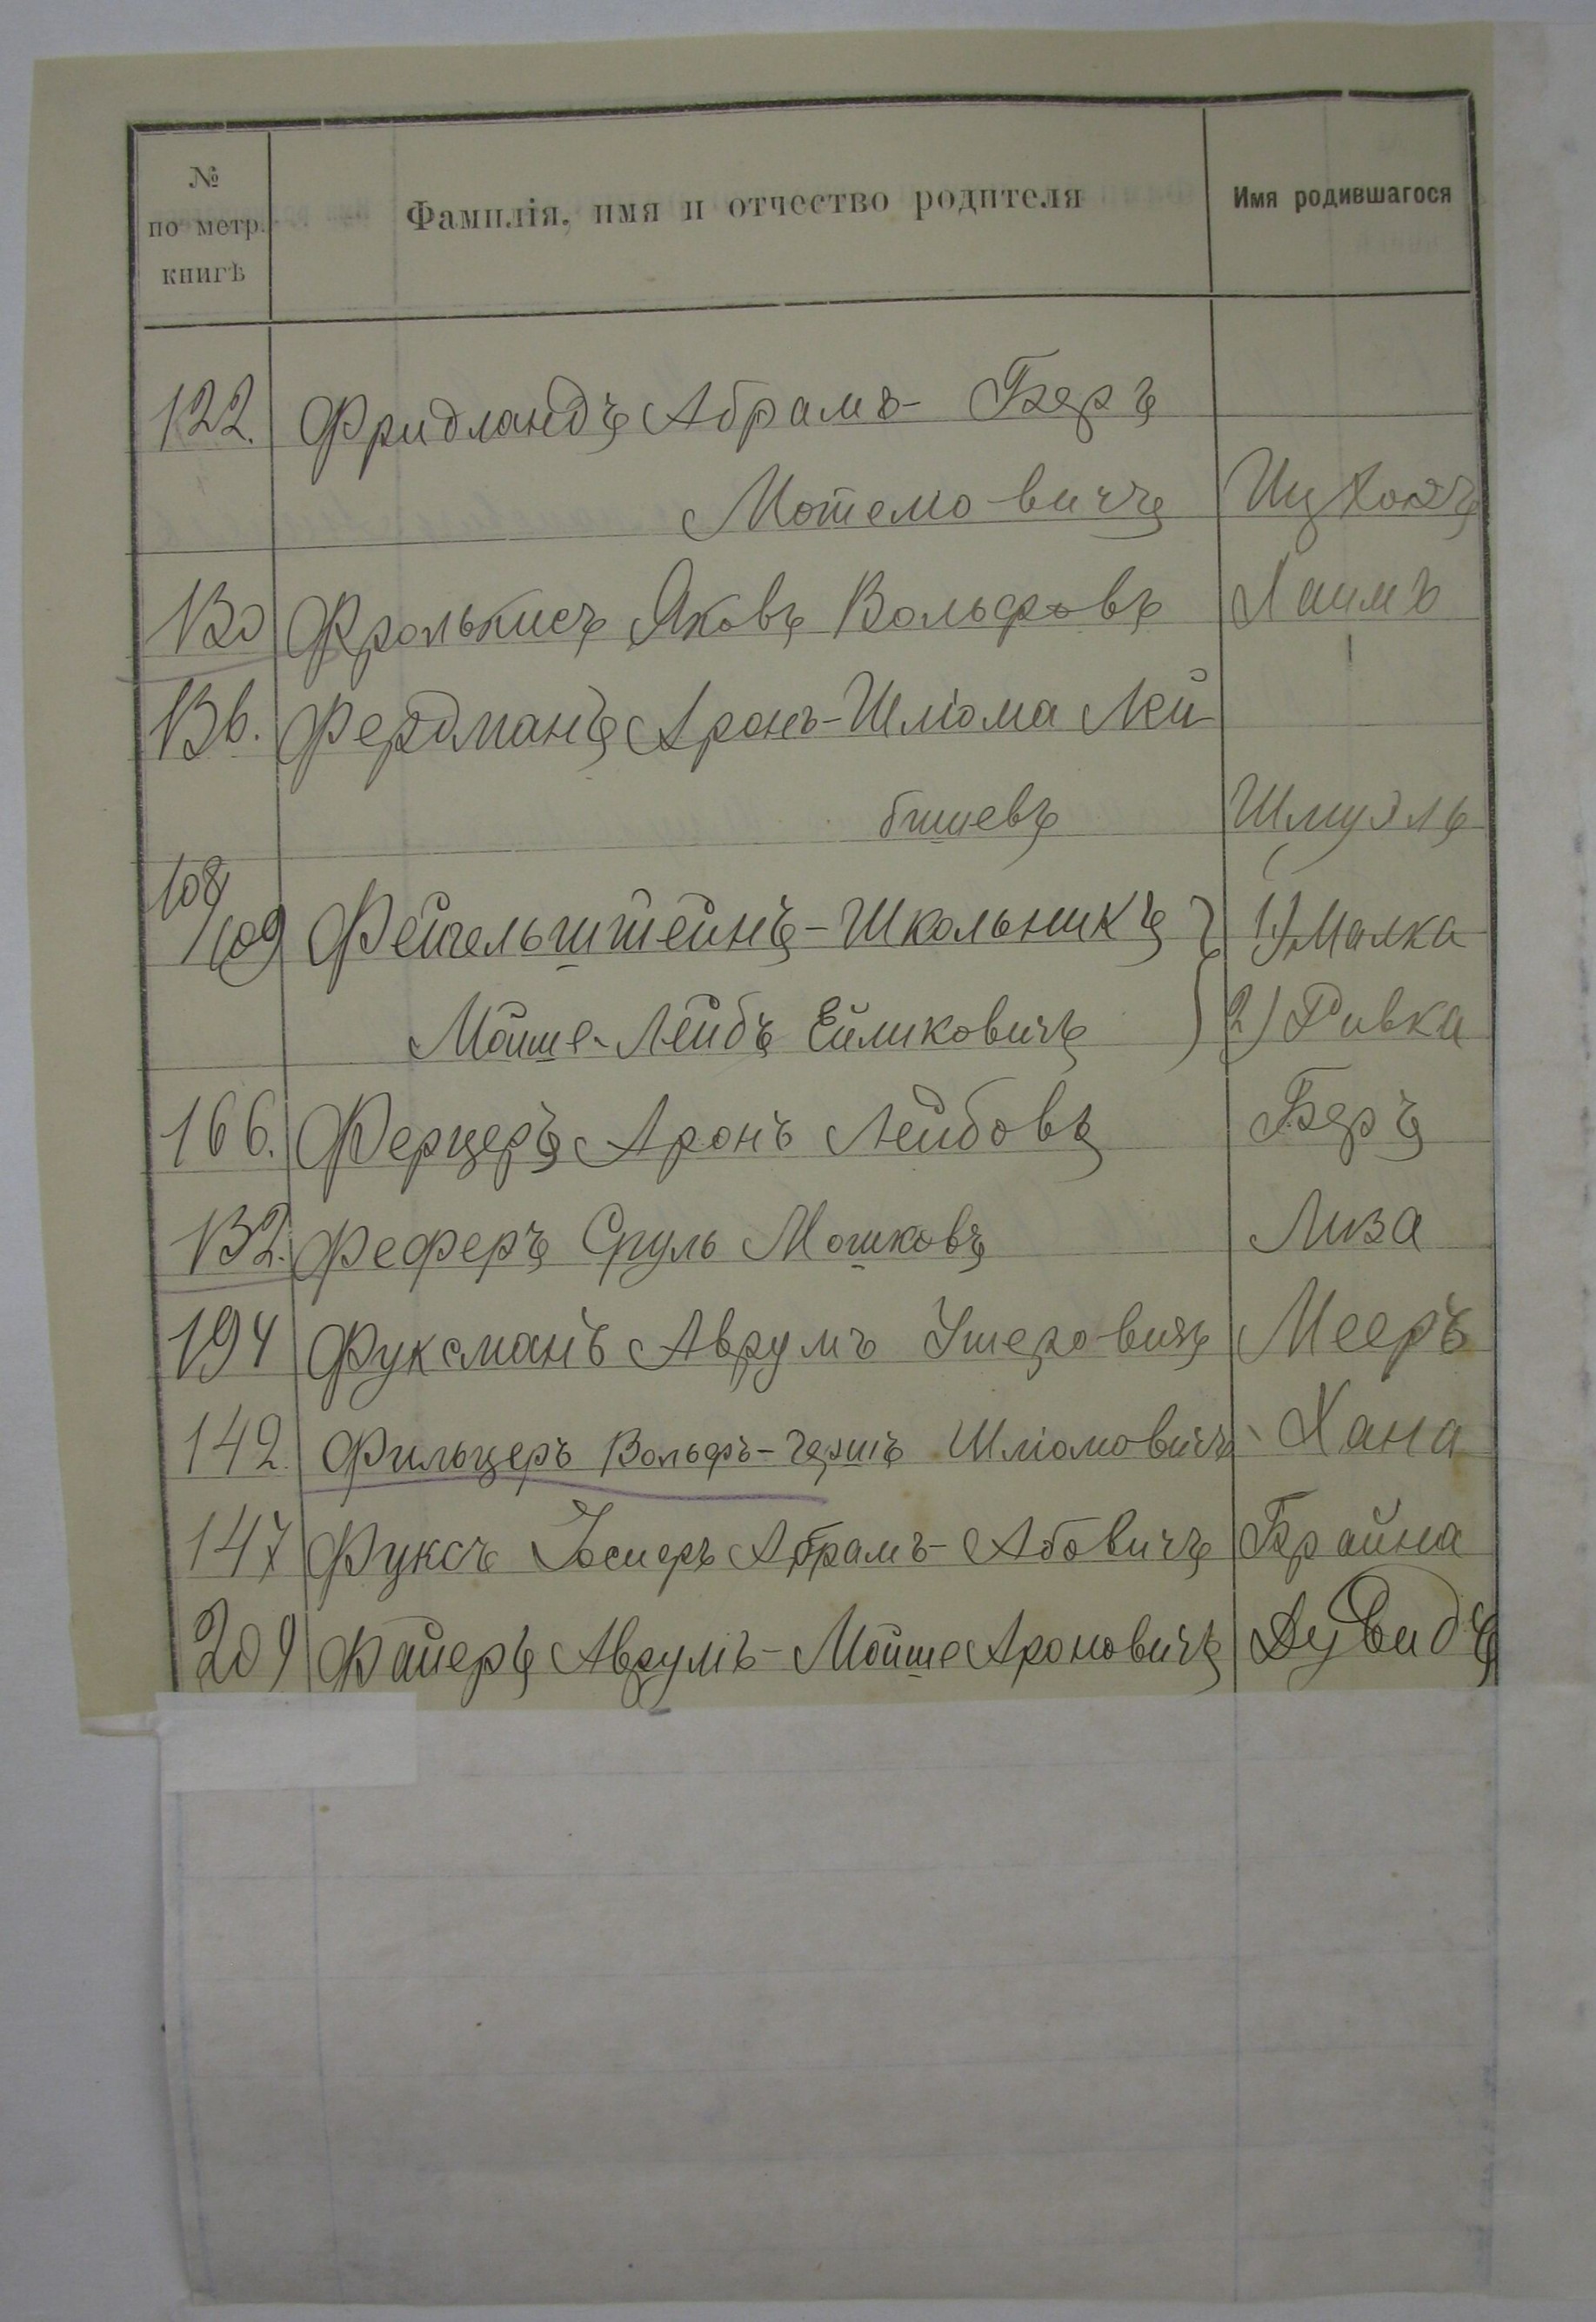 №
по метр.
книгѣ
Фамилія, имя и отчество родителя
Имя родившагося
122. Фридландъ Абрамъ-Беръ
Мотемовичъ Ицхокъ
130 Фролькисъ Яковъ Вольфовъ Хаимъ
136. Фердманъ Аронъ-Шліома Лей-
бишевъ Шмуэль
108/109 Фейгельштейнъ-Школьникъ } 1) Малка
Мойше-Лейбъ Ейликовичъ 2) Ривка
166. Ферцеръ Аронъ Лейбовъ Беръ
132. Феферъ Сруль Мошковъ Лиза
194 Фуксманъ Аврумъ Ушеровичъ Мееръ
142. Фильцеръ Вольфъ-Гершъ Шліомовичъ Хана
147 Фуксъ Іосифъ Абрамъ-Абовичъ Брайна
209 Файеръ Аврумъ-Мойше Ароновичъ Дувидъ